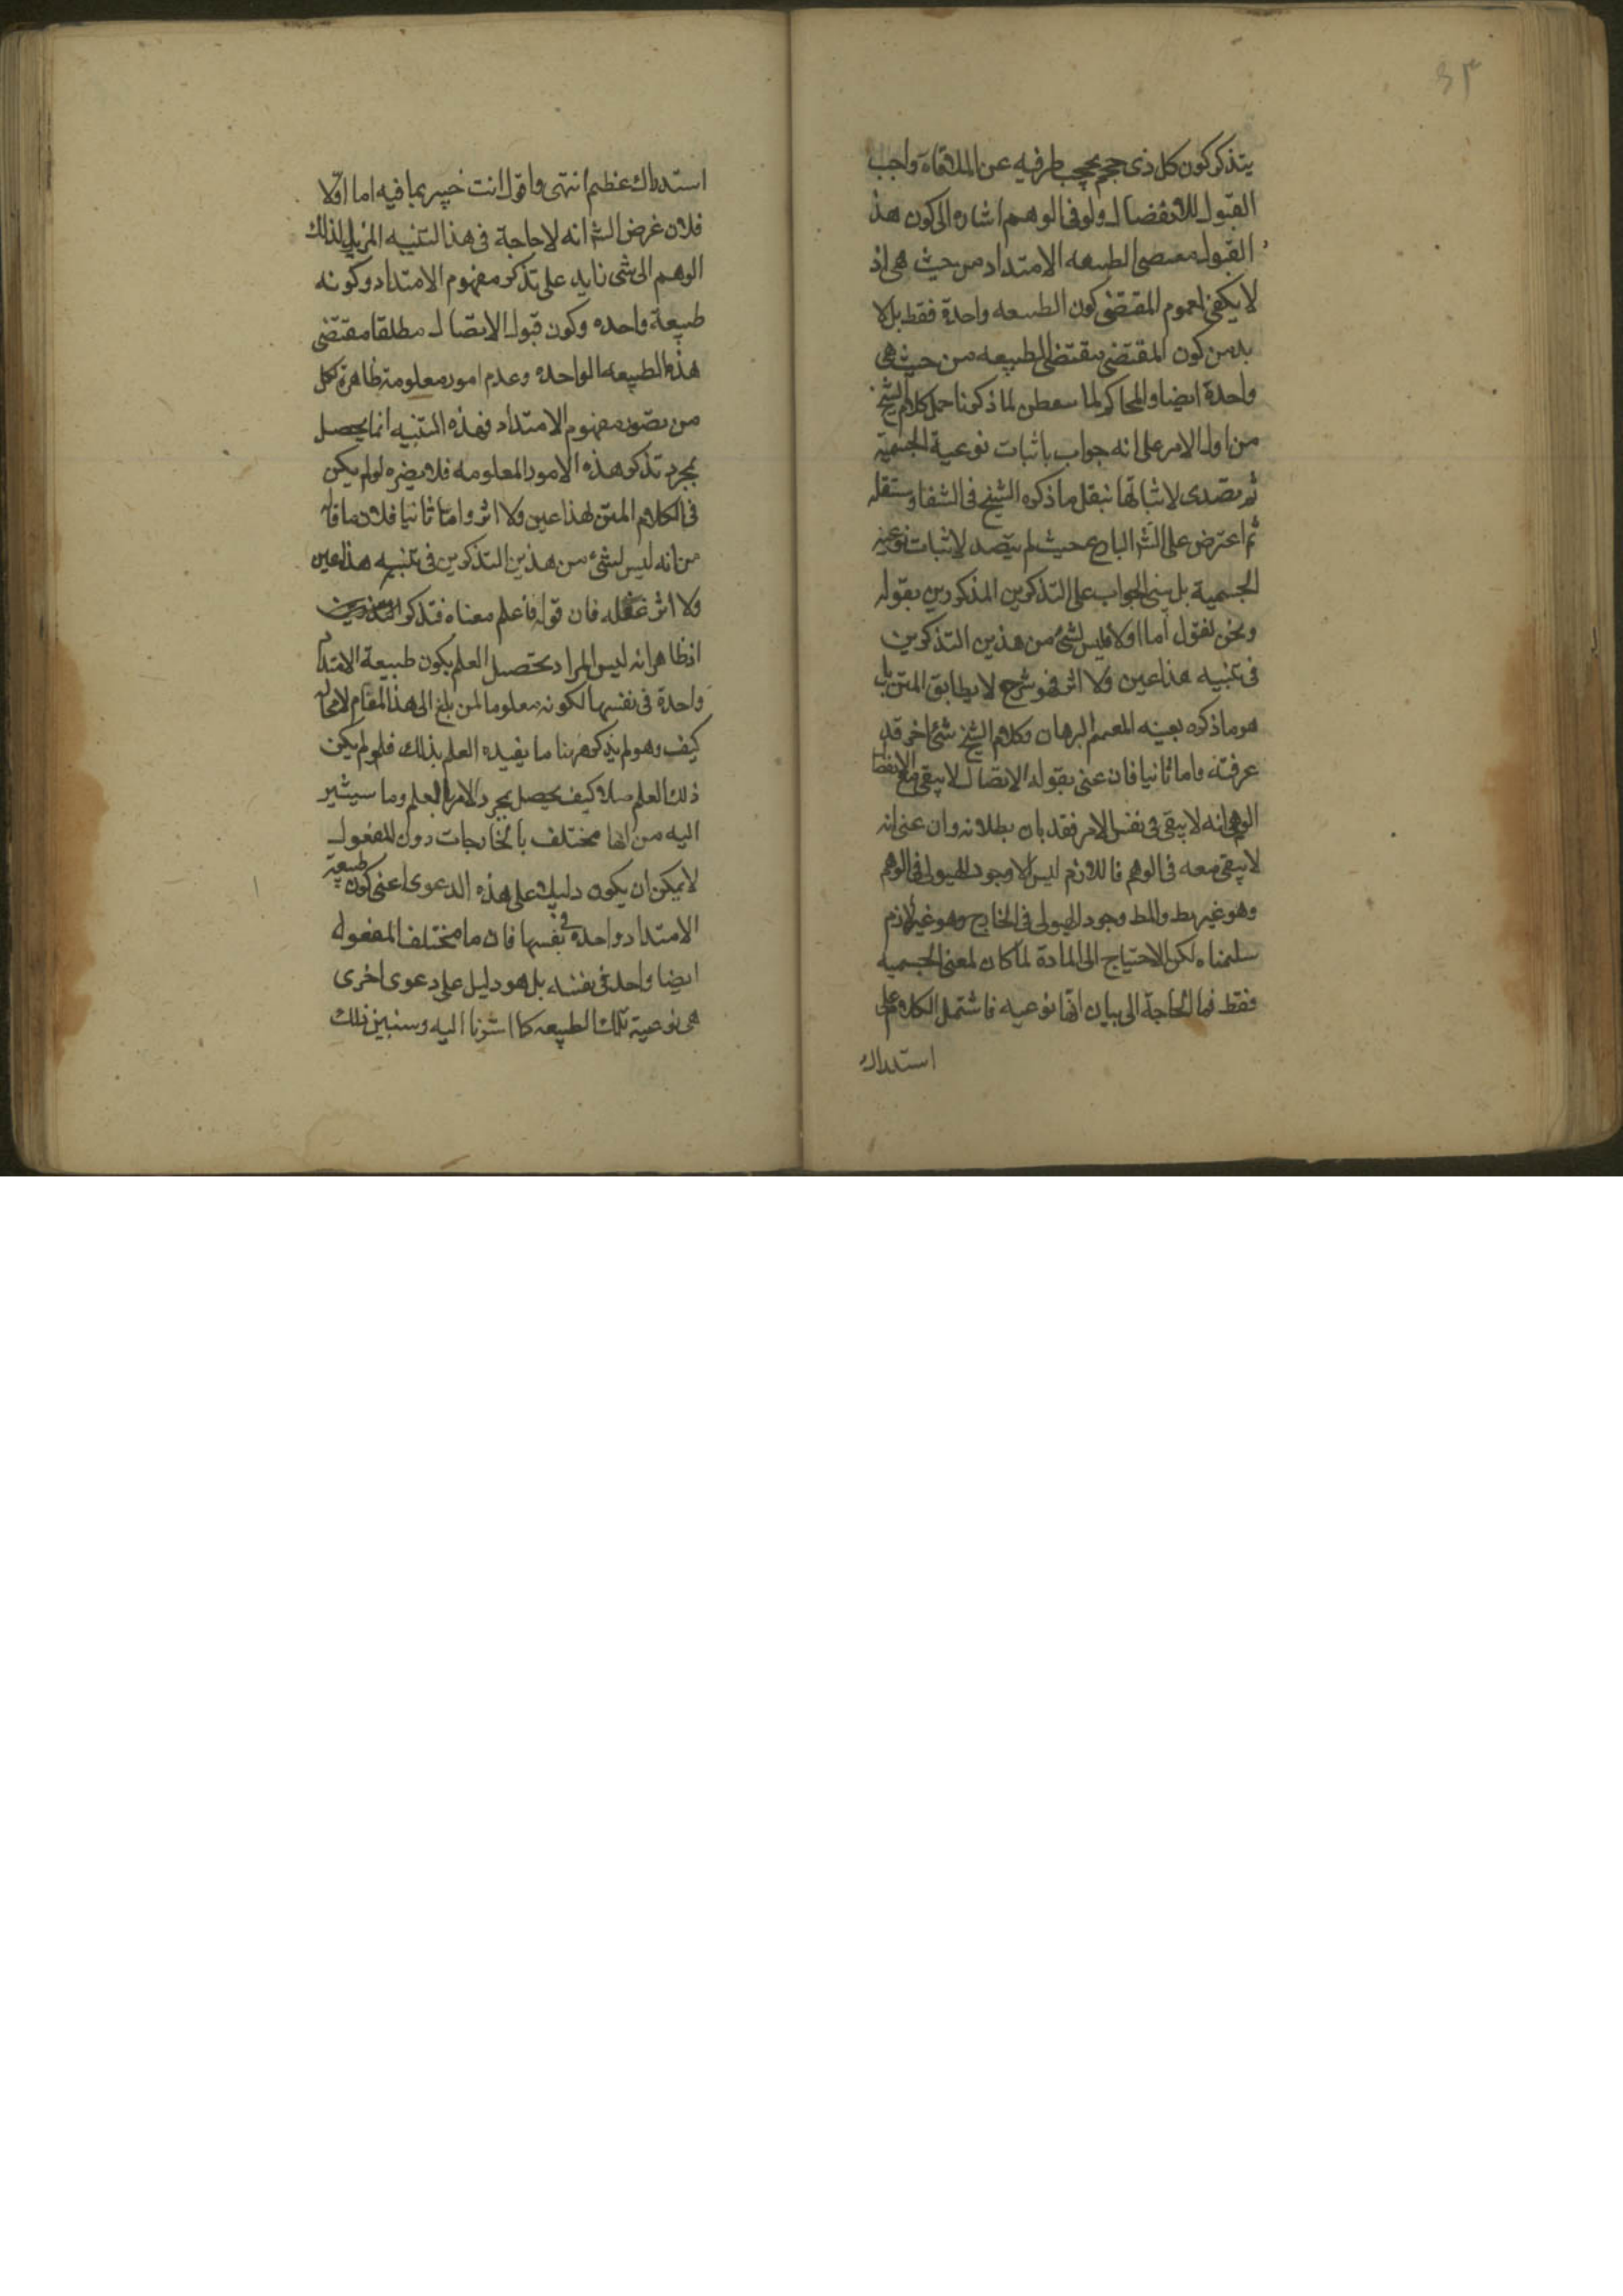 ٤٣
يتذكر كون كل ذى حجم يحجب طرفيه عن الملاقاة واجب
القبول للانفصال ولو فى الوهم اشاره الى كون هذ
القبول مقتضى الطبيعه الامتداد من حيث هى اذ
لا يكفى لعموم المقتضى كون الطبيعه واحدة فقط بل لا
بد من كون المقتضى مقتضى الطبيعه من حيث هى
واحدة ايضا والمحاكم لما تفطن لما ذكرنا حمل كلام الشيخ
من اول الامر على انه جواب باثبات نوعية الجسمية
ثم تصدى لاثباتها بنقل ما ذكره الشيخ فى الشفا وستقله
ثم اعترض على الش البارع حيث لم يتصد لاثبات نوعية
الجسمية بل بنى الجواب على التذكرين المذكورين بقوله
ونحن نقول اما اولا فليس لشئ من هذين التذكرين
فى تنبيه هذا عين ولا اثر فهو شرح لا يطابق المتن بل
هو ما ذكره بعينه المعمم البرهان وكلام الشيخ شئ اخر قد
عرفته واما ثانيا فان عنى بقوله الاتصال لا يبقى مع الانفصال
الوهمى انه لا يبقى فى نفس الامر فقد بان بطلانه وان عنى انه
لا يبقى معه فى الوهم فاللازم ليس الا وجود الهيولى فى الوهم
وهو غير مط والمط وجود الهيولى فى الخارج وهو غير لازم
سلمناه لكن الاحتياج الى المادة لما كان لمعنى الجسميه
فقط فما الحاجة الى بيان انها نوعيه فاشتمل الكلام على
استدراك
استدراك عظيم انتهى واقول انت خبير بما فيه اما اولا
فلان غرض الش انه لا حاجة فى هذا التنبيه المزيل لذلك
الوهم الى شى زايد على تذكر مفهوم الامتداد وكونه
طبيعة واحده وكون قبول الاتصال مطلقا مقتضى
هذه الطبيعه الواحده وعدم امور معلومة ظاهرة لكل
من تصور مفهوم الامتداد فهذه التنبيه انما يحصل
بمجرد تذكر هذه الامور المعلومه فلا يضره لو لم يكن
فى الكلام المتن لهذا عين ولا اثر واما ثانيا فلان ما قاله
من انه ليس لشئ من هذين التذكرين فى تنبيه هذا عين
ولا اثر غفله فان قوله فاعلم معناه فتذكر التذكرين
اذ ظاهر انه ليس المراد تحصيل العلم بكون طبيعة الامتداد
واحدة فى نفسها لكونه معلوما لمن بلغ الى هذا المقام لا محاله
كيف وهو لم يذكر ههنا ما يفيده العلم بذلك فلو لم يكن
ذلك العلم حاصلا كيف يحصل بمجرد الامر بالعلم وما سيشير
اليه من انها مختلف بالخارجات دون الفصول
لا يمكن ان يكون دليل على هذه الدعوى اعنى كون طبيعة
الامتداد واحدة فى نفسها فان ما مختلف الفصول
ايضا واحد فى نفسه بل هو دليل على دعوى اخرى
هى نوعية تلك الطبيعه كما اشرنا اليه وسنبين ذلك